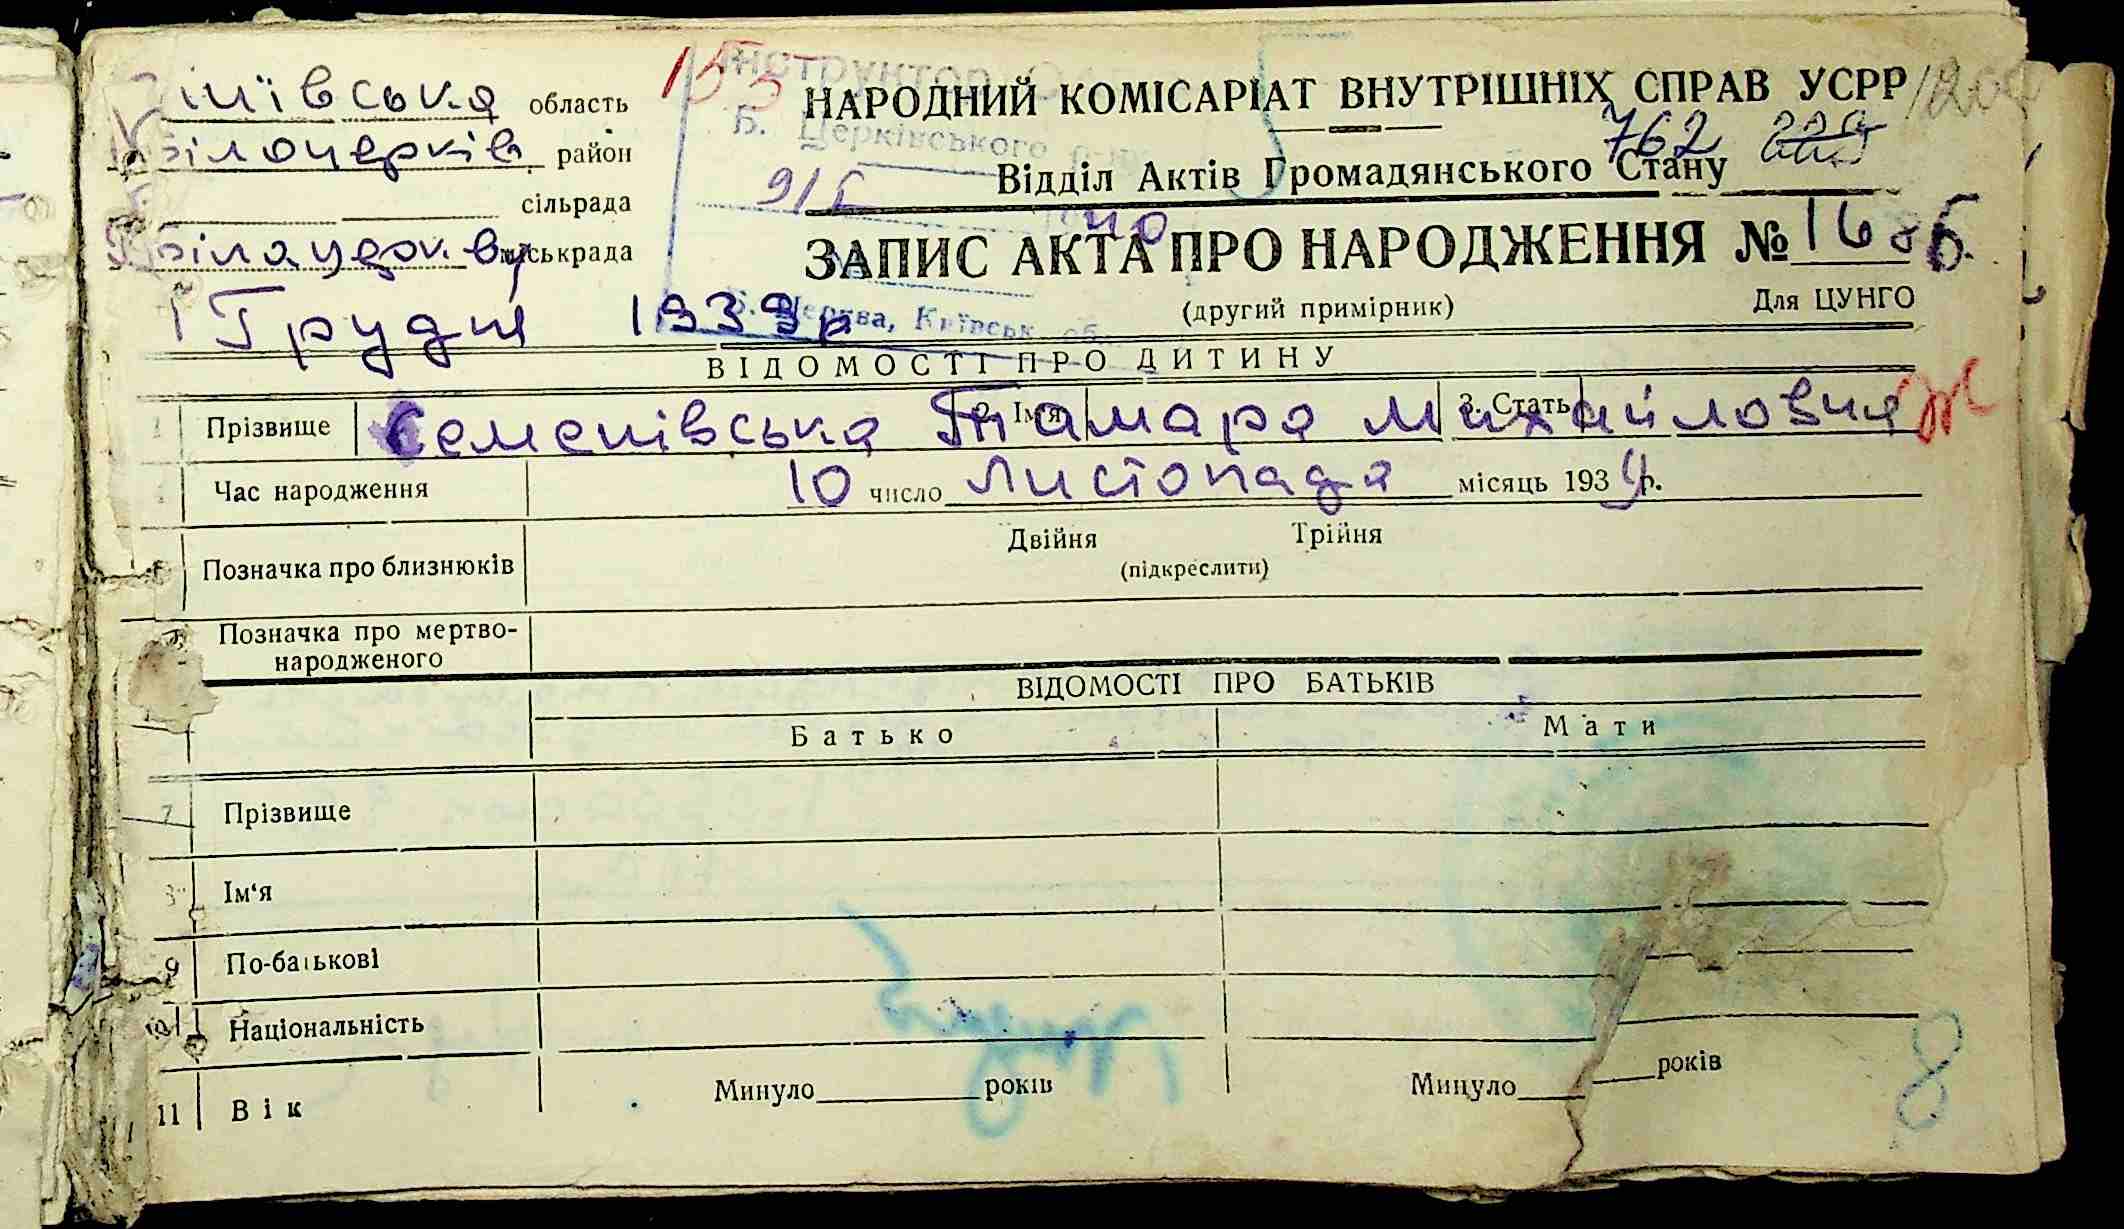 Київська область
Білоцерків район
сільрада
Білацеркву міськрада
155
НАРОДНИЙ КОМІСАРІАТ ВНУТРІШНІХ СПРАВ УСРР
Б. Церківського
762
Відділ Актів Громадянського Стану
9/I 40
ЗАПИС АКТА ПРО НАРОДЖЕННЯ № 168б
(другий примірник) Для ЦУНГО
1 Грудня 1939 р
Б. Церква, Київськ. об.
ВІДОМОСТІ ПРО ДИТИНУ
1 Прізвище Семенівська 2. Ім'я Тамара Михайловна 3. Стать Ж
Час народження 10 число Листопада місяць 1939 р.
Позначка про близнюків Двійня Трійня
(підкреслити)
Позначка про мертво-
народженого
ВІДОМОСТІ ПРО БАТЬКІВ
Батько Мати
7 Прізвище
8 Ім'я
9 По-батькові
10 Національність
11 Вік Минуло років Минуло років
8